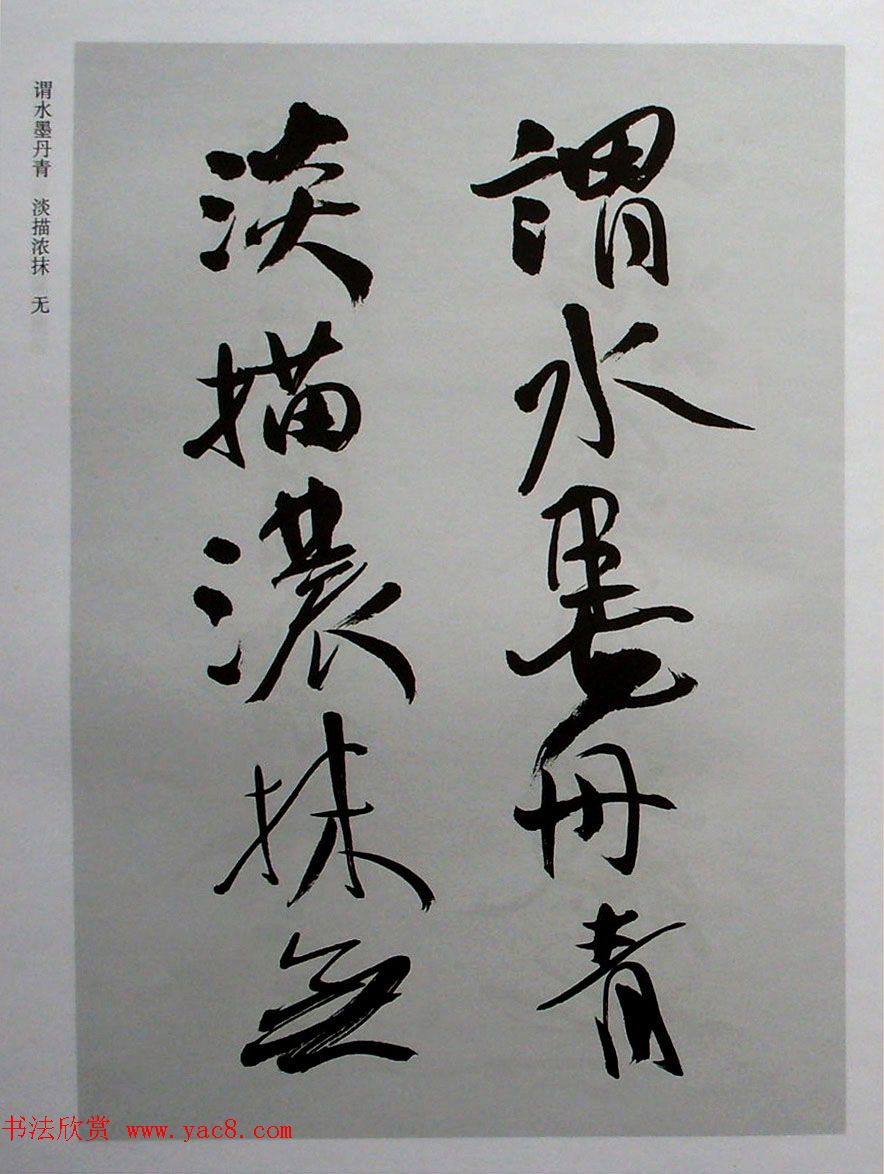 謂水墨丹青
淡描濃抹無
谓水墨丹青 淡描浓抹 无
书法欣赏 www.yac8.com